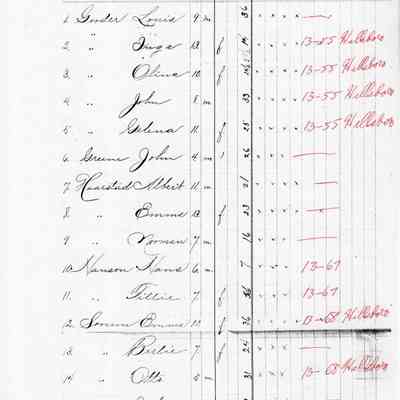 1. Gunder Louis 9 m 36 x x x x
2. " Inga 13 f 14 x x x x 13-55 Hillsboro
3. " Olina 10 f x x x x 13-55 Hillsboro
4. " John 8 m 33 x x x x 13-55 Hillsboro
5. " Gelena 11 f 25 x x x x 13-55 Hillsboro
6. Greene John 4 m 1 26 x x x
7. Haarstad Albert 11 m 21 x x x x
8. " Emma 13 f 23 x x x x
9. " Norman 7 m 16 x x x
10. Hanson Hans 6 m 7 x x x 13-67
11. " Tillie 7 f 36 x x x 13-67
12. Emma f 36 x x x 13-68 Hillsboro
13. " Bertie 7 f 24 x x x
14. " Otto 5 m 31 x x x 13-68 Hillsboro